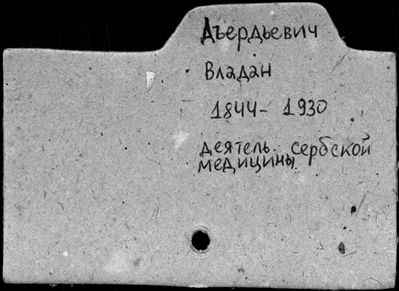 Дъердьевич
Владан
1844- 1930
деятель сербской
медицины